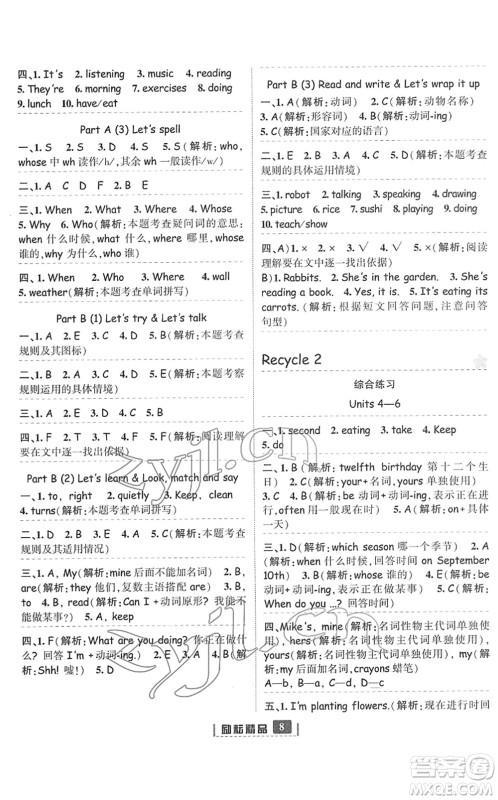 四、1. It's 2. listening 3. music 4. reading
5. They're 6. morning 7. exercises 8. doing
9. lunch 10. have/eat
Part A (3) Let's spell
一、1. S 2. S 3. S 4. S (解析:who,
whose 中 wh 读作/h/,其余 wh 一般读作/w/)
二、1. A C D F
三、1. When 2. What 3. Where 4. Whose
5. Why 6. Who(解析:本题考查疑问词的意思:
when 什么时候,what 什么,where 哪里,whose
谁的,why 为什么,who 谁)
四、1. When 2. Who 3. Where 4. wall
5. weather(解析:本题考查单词拼写)
Part B (1) Let's try & Let's talk
一、1. B 2. C 3. A 4. D 5. E(解析:本题考查
规则及其图标)
二、1. A 2. B 3. D 4. C (解析:本题考察
规则运用的具体情境)
三、1. C 2. E 3. D 4. A 5. B
四、1. F 2. T 3. T 4. F 5. F(解析:阅读理解
要在文中逐一找出依据)
Part B (2) Let's learn & Look, match and say
一、1. to, right 2. quietly 3. Keep, your
4. turns(解析:本题考查单词拼写)
二、1. E 2. C 3. D 4. A 5. B(解析:本题考查
规则及其适用情况)
三、1. A, My(解析:mine 后面不能加名词) 2. B,
are(解析:they 他们,复数主语搭配 are) 3. B,
to 4. B, read (解析:Can I +动词原形? 我能不
能……?) 5. A, Keep
四、1. F(解析:What are you doing? 你正在做什
么? 回答 I'm +动词-ing.) 2. A 3. E 4. B(解
析:Shh! 嘘!) 5. D
Part B (3) Read and write & Let's wrap it up
一、1. A(解析:动词) 2. C(解析:动物名称)
3. A(解析:形容词) 4. B(解析:动词-ing)
5. C(解析:国家对应的语言)
二、1. C 2. E 3. B 4. A 5. D(解析:本题考查
规则的具体运用情境)
三、1. robot 2. talking 3. speaking 4. drawing
5. picture 6. rice 7. sushi 8. playing 9. doing
10. teach/show
四、A) 1. × 2. × 3. √ 4. √ 5. ×(解析:阅读
理解要在文中逐一找出依据)
B) 1. Rabbits. 2. She's in the garden. 3. She's
reading a book. 4. Yes, it is. 5. It's eating its
carrots. (解析:短文回答问题,注意问答
句型)
Recycle 2
综合练习
Units 4—6
一、1. second 2. eating 3. take 4. Keep
5. do
二、1. B(解析:twelfth birthday 第十二个生
日) 2. C(解析:your+名词,yours 单独使用)
3. B(解析:be 动词+动词-ing,表示正在进
行或正在做某事) 4. C 5. A(解析:on+具体
一天)
三、1. D(解析:which season 哪一个季节) 2. E
(解析:when 什么时候,回答时间 on September
10th) 3. B(解析:be 动词+动词-ing 表示正在进
行或正在做某事) 4. C 5. A(解析:when 什
么时候,回答时间)
四、Mike's, mine(解析:名词性物主代词单独使
用), hers(解析:名词性物主代词单独使用),
yours(解析:名词性物主代词单独使用), my(解
析:形容词性物主代词加名词),crayons 蜡笔)
A—b B—c C—a D—d
五、1. I'm planting flowers. (解析:现在进行时回
励耘精品 8
zyjl.cn
zyjl.cn